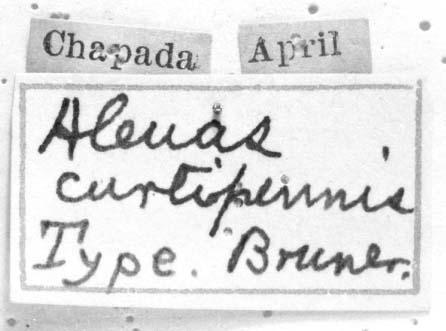 Chapada April
Aleuas
curtipennis
Type. Bruner.